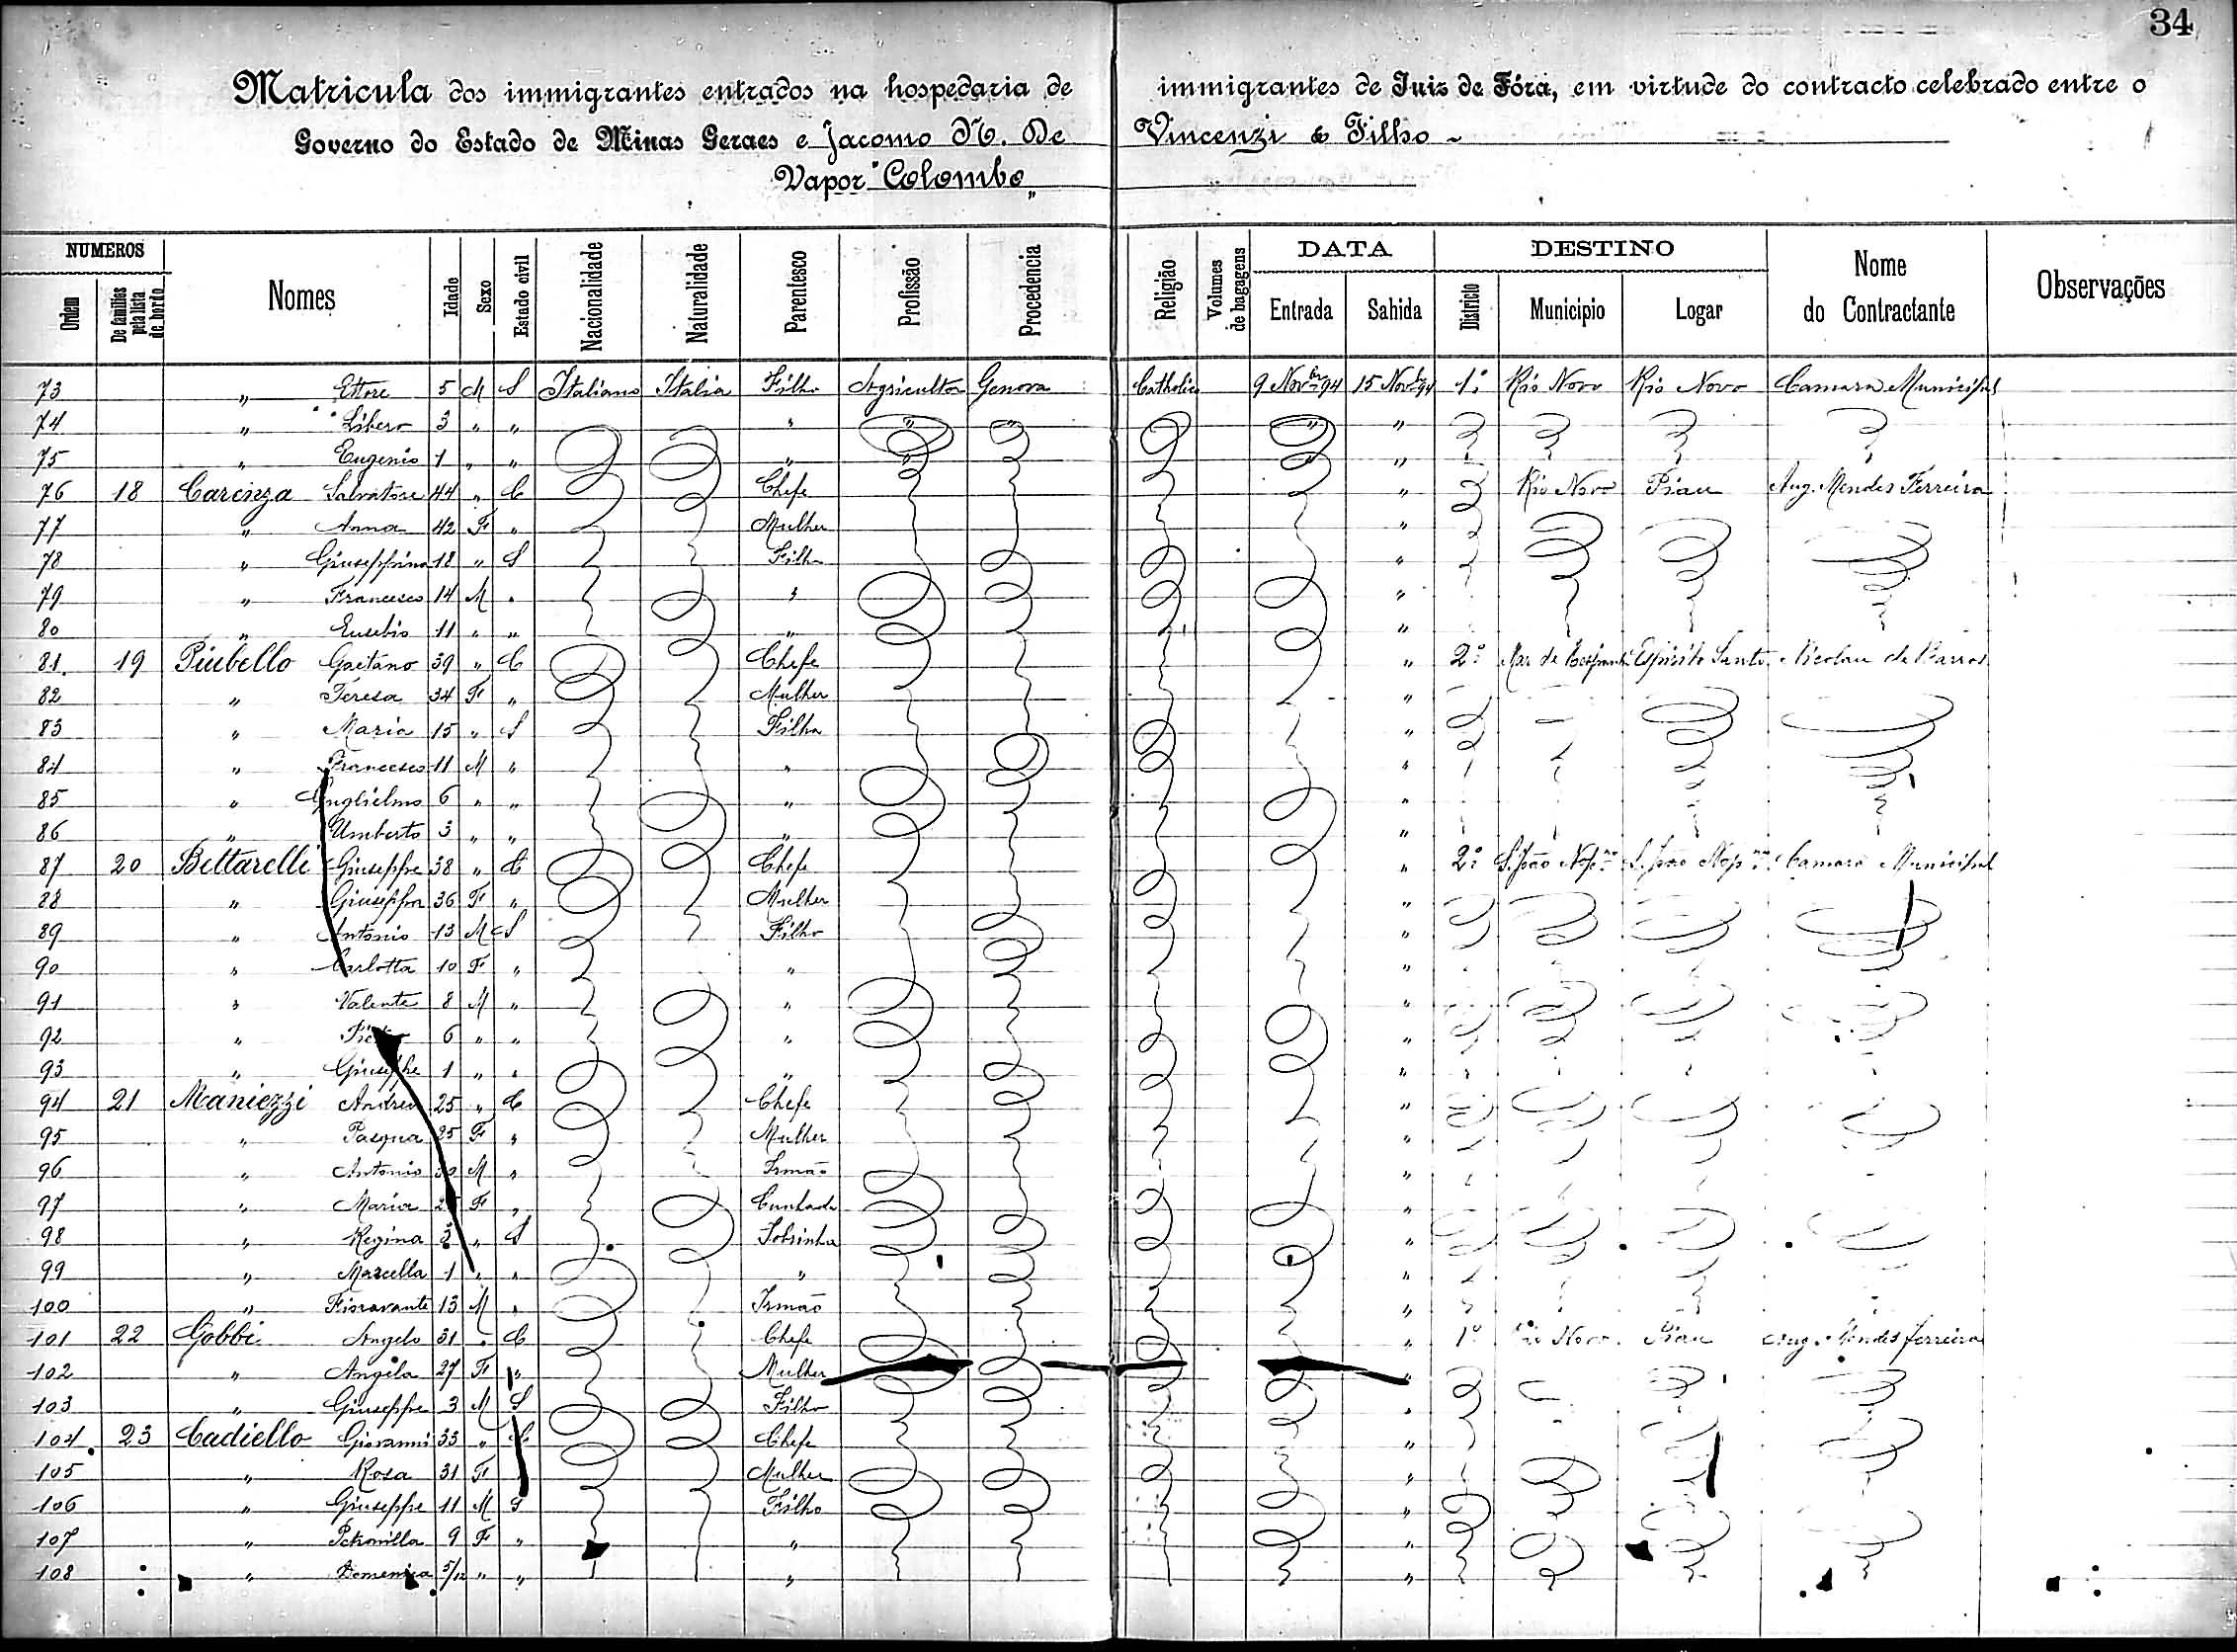 34
Matricula dos immigrantes entrados na hospedaria de immigrantes de Juiz de Fóra, em virtude do contracto celebrado entre o
Governo do Estado de Minas Geraes e Jacomo N. De Vincenzi & Filho
Vapor "Colombo"
NUMEROS DATA DESTINO
Ordem De familias pela lista de bordo Nomes Idade Sexo Estado civil Nacionalidade Naturalidade Parentesco Profissão Procedencia Religião Volumes de bagagens Entrada Sahida Districto Municipio Logar Nome do Contractante Observações
73 " Ettore 5 M S Italiano Italia Filho Agricultor Genova Catholica 9 Novbr 94 15 Novbr 94 1º Rio Novo Rio Novo Camara Municipal
74 " Libero 3 " " " " " " "
75 " Eugenio 1 " " " " " "
76 18 Carcinza Salvatore 44 " C Chefe " Rio Novo Piau Aug. Mendes Ferreira
77 " Anna 42 F " Mulher "
78 " Giuseppina 18 " S Filha "
79 " Francesco 14 M " " "
80 " Eusebio 11 " " " "
81 19 Piubello Gaetano 39 " C Chefe " 2º Mar de Hespanha Espirito Santo Nicolau de Barros
82 " Teresa 34 F " Mulher "
83 " Maria 15 " S Filha "
84 " Francesco 11 M " " "
85 " Guglielmo 6 " " " "
86 " Umberto 3 " " " "
87 20 Bettarelli Giuseppe 38 " C Chefe " 2º S. João Nepno S. João Nepno Camara Municipal
88 " Giuseppa 36 F " Mulher "
89 " Antonio 13 M S Filho "
90 " Carlotta 10 F " " "
91 " Valente 8 M " " "
92 " 6 " " " "
93 " Giuseppe 1 " " " "
94 21 Maniezzi Andrea 25 " C Chefe "
95 " Pasqua 25 F " Mulher "
96 " Antonio M " Irmão "
97 " Maria F " Cunhada "
98 " Regina " S Sobrinha "
99 " Marcella 1 " " " "
100 " Fioravante 13 M " Irmão "
101 22 Gobbi Angelo 31 " C Chefe " 1º Rio Novo Piau Aug. Mendes Ferreira
102 " Angela 27 F " Mulher "
103 " Giuseppe 3 M S Filho "
104 23 Cadiello Giovanni 33 " C Chefe "
105 " Rosa 31 F Mulher "
106 " Giuseppe 11 M S Filho "
107 " Petronilla 9 F " " "
108 " Domenica 5/12 " " " "